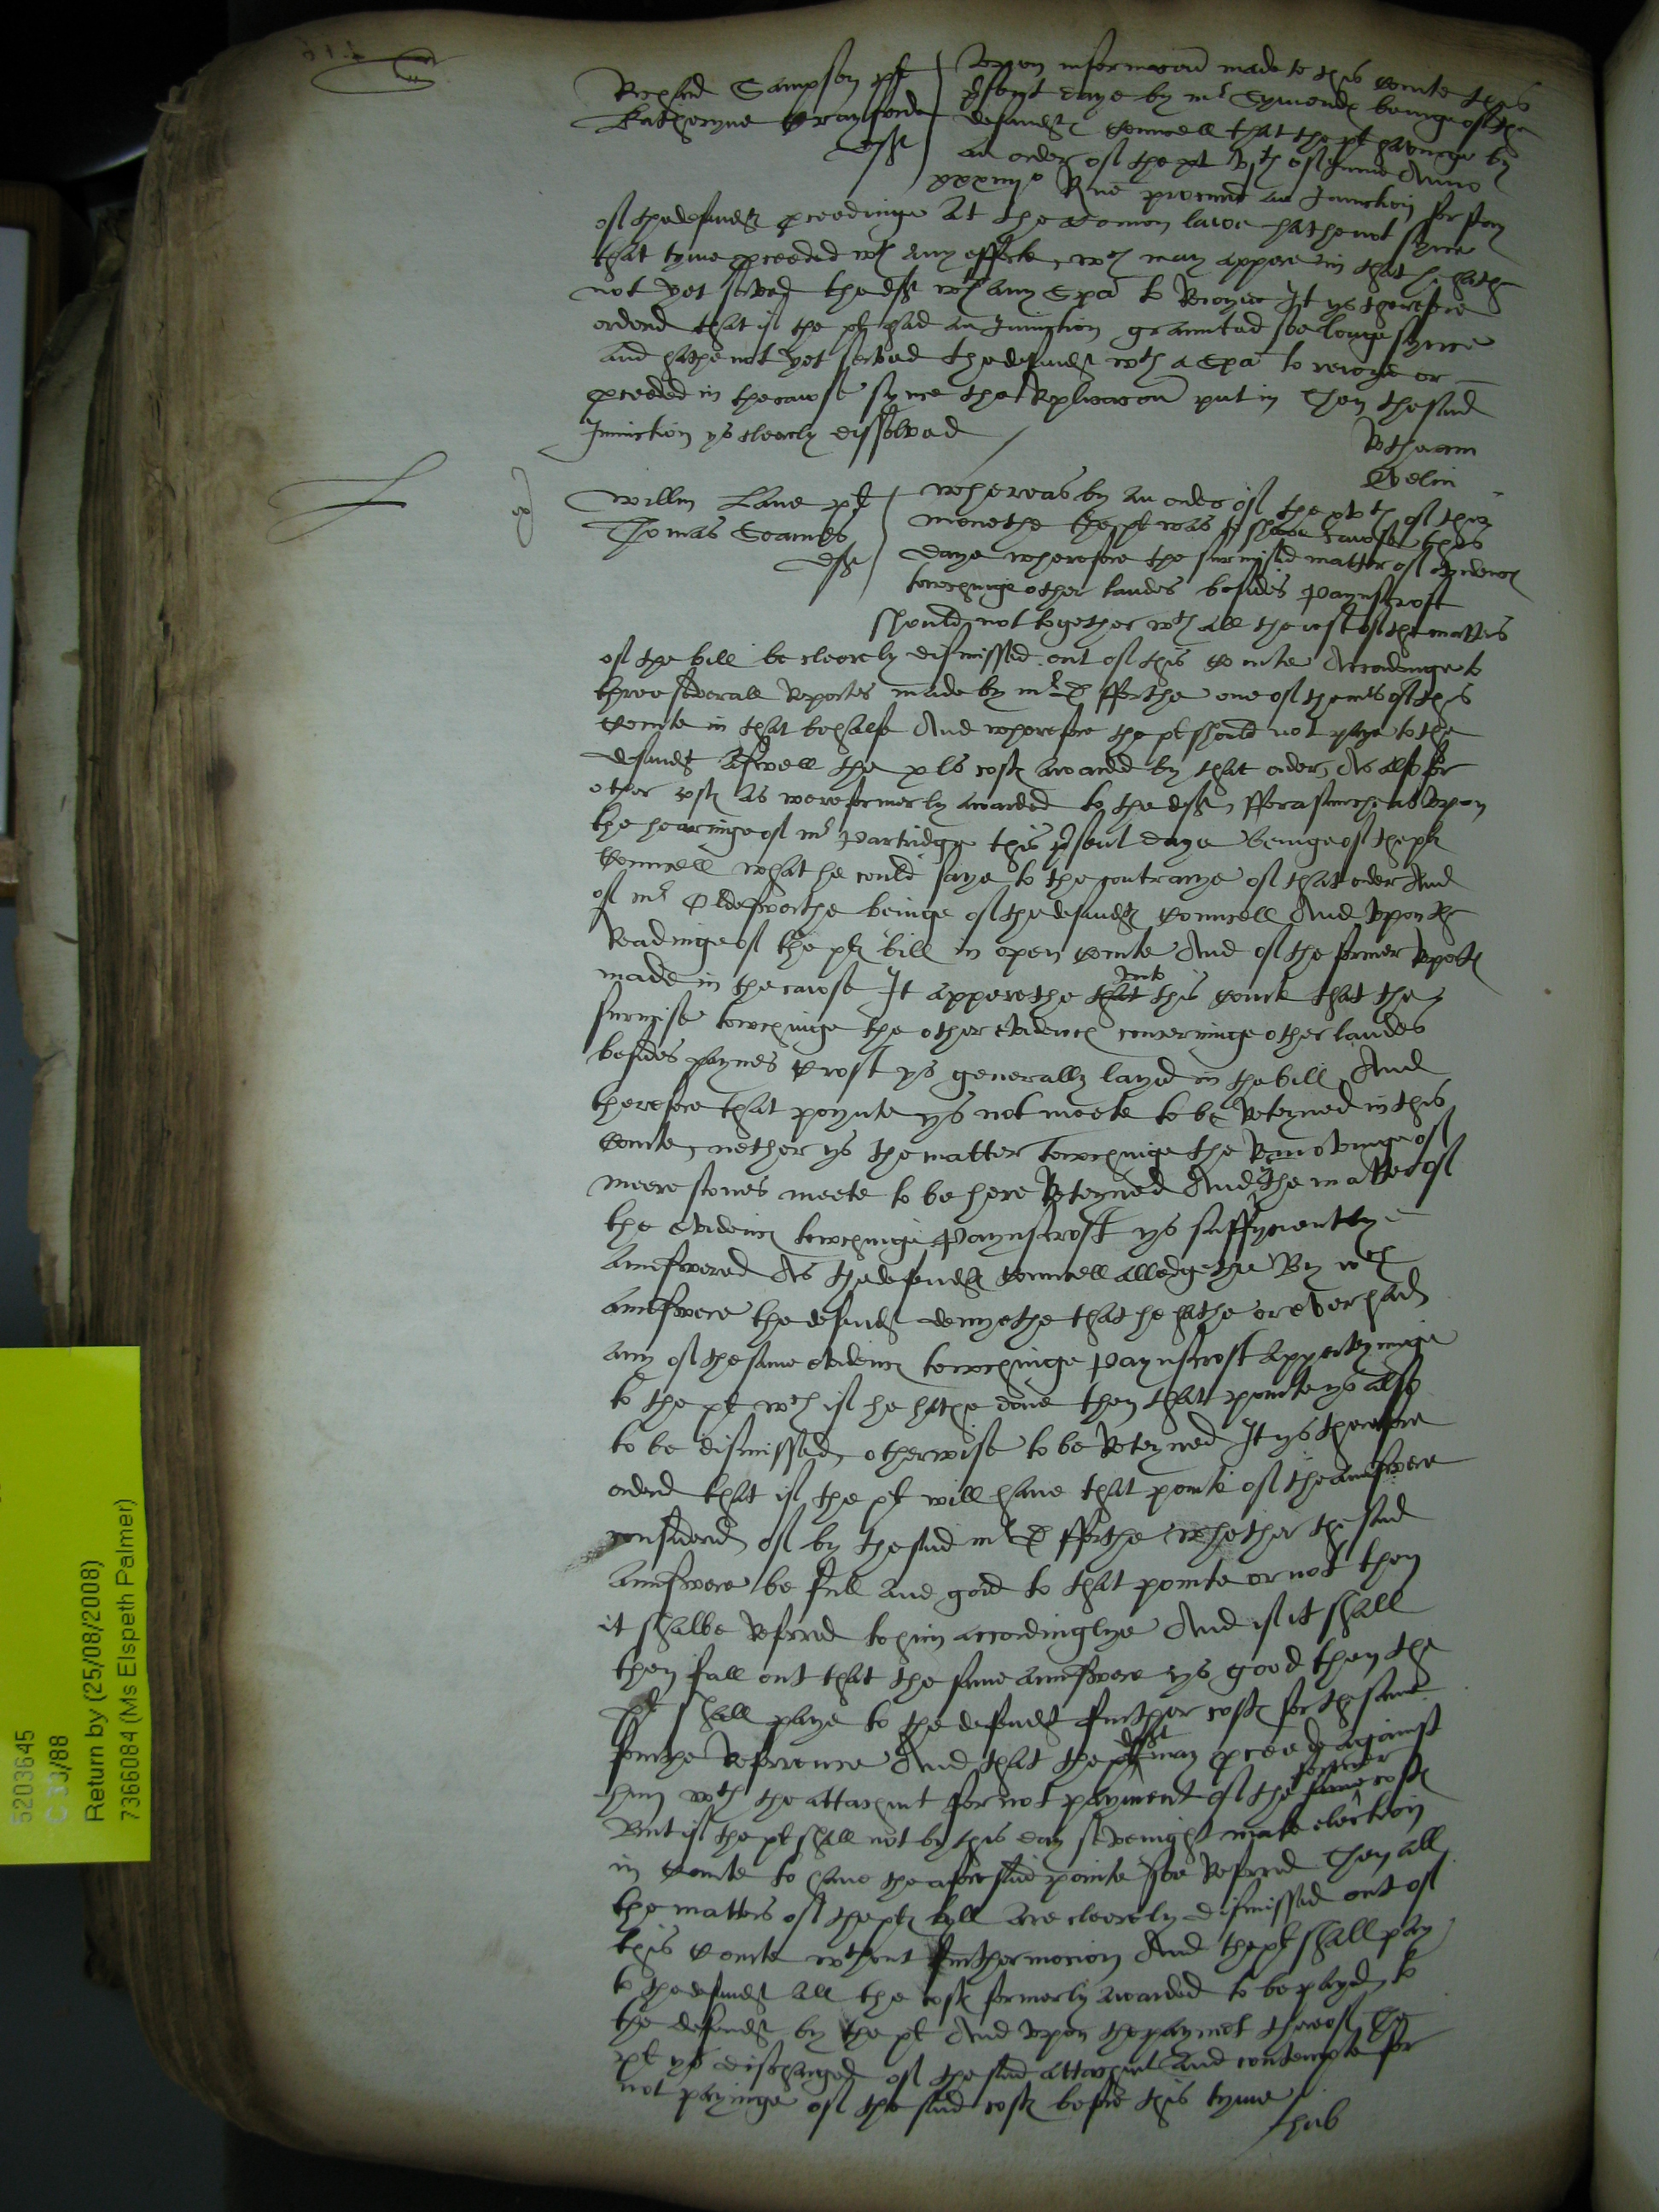 Richard Sampson plt
Katheryne Crayforde
deft
Uppon informacon made to this Courte this
psent daye by mr Symondes beinge of the
defendtes Councell that the plt havinge by
an order of the of June Anno
xxxiiijo Rne procured an Iniunction for stay
of the defendtes pceedinge at the comon lawe hathe not synce
that tyme pceeded wth any effecte, wch may appere in that he hathe
not yet served the deft wth any Spa to Reioyne It ys therefore
ordered that if the plt had an Iniunction graunted soe longe synce
and hathe not yet served the defendt wth a Spa to reioyne or
pceeded in the cause synce the Replicacon put in Then the said
Iniunction ys cleerely dissolved
Willm Lane plt
Thomas Soames
deft
Whereas by an order of the of this
monethe the plt was to shewe cause this
daye wherefore the surmysed matter of evidence
towchinge other landes besides Paynscroft
should not together wth all the rest of the matters
of the bill be cleerely dismissed out of this Courte Accordinge to
three severall Reportes made by mr D fforthe one of the mrs of this
Courte in that behalfe And wherefore the plt should not paye to the
defendt aswell the xls costes awarded by that order, As also for
other costes as were formerly awarded to the deft, fforasmuche as Upon
the hearinge of mr Partridge this psent daye beinge of the pltes
Councell what he could saye to the contrarye of that order And
of mr Oldesworthe beinge of the defendtes Councell And Upon the
Readinge of the pltes bill in open Courte And of the former Reportes
made in the cause It apperethe that unto this Courte that the
surmise towchinge the other evidence concerninge other landes
besides Paynes Croft ys generally layed in the bill, And
therefore that poynte ys not meete to be Reteyned in this
Courte, nether ys the matter towchinge the Removinge of
meere stones meete to be here Reteyned And the matter of
the evidence towchinge Paynscroft ys suffycyently
aunswered As the defendtes Councell alledgethe By wch
aunswere the defendt denyethe that he hathe or ever had
any of the same evidence towchinge Paynscroft apperteyninge
to the plt wch if he hathe done then that pointe ys also
to be dismissed, otherwise to be Reteyned It ys therefore
ordered that if the plt will have that pointe of the aunswere
considered of by the said mr D fforthe whether the said
aunswere be full and good to that pointe or not then
it shalbe Referred to him accordinglye And if it shall
then fall out that the same aunswere ys good then the
plt shall paye to the defendt further costes for the same
fourthe Referrence And that the plt deft may pceede against
him wth the attachmt for not payment of the same former costes
But if the plt shall not by this day sevenight make election
in Courte to have the aforesaid pointe soe Referred Then all
the matters of the pltes byll are cleerely dismissed out of
this Courte wthout further mocion And the plt shall pay
to the defendt all the costes formerly awarded to be payed to
the defendt by the plt And Upon the paymet thereof the
plt ys discharged of the said attachmt and contempte for
not payinge of the said costes before this tyme
5203645
C 33/88
Return by (25/08/2008)
7366084 (Ms Elspeth Palmer)